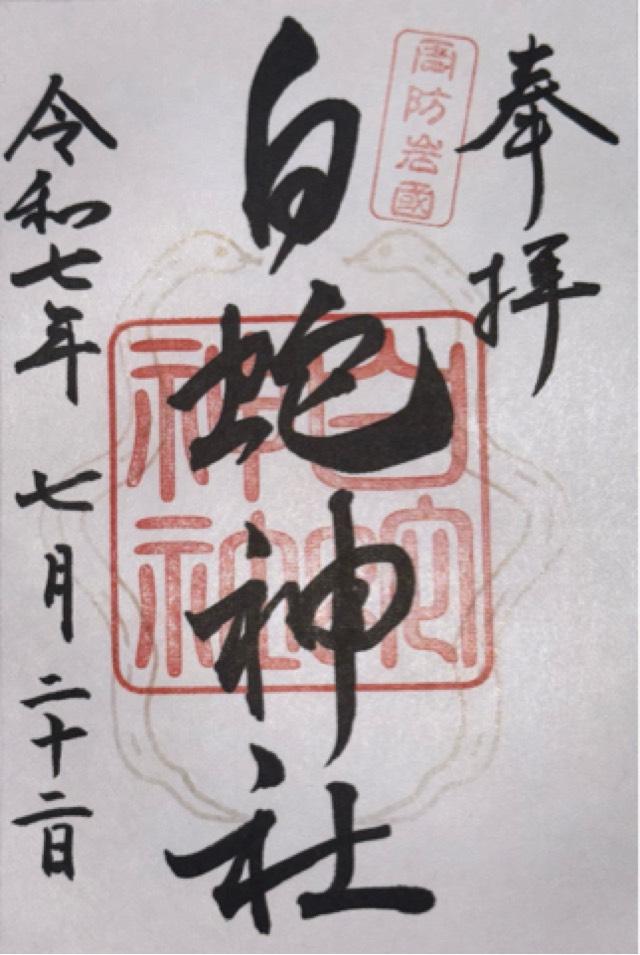 奉拝
周防岩國
白蛇神社
白蛇
神社
令和七年 七月二十二日